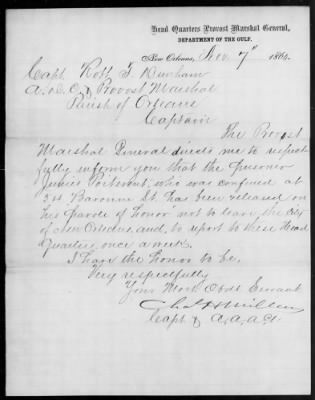 Head Quarters Provost Marshal General,
DEPARTMENT OF THE GULF.
New Orleans, Nov. 7" 1864.
Capt. Robt. T. Dunham
A.D.C. & Provost Marshal
Parish of Orleans
Captain
The Provost
Marshal General directs me to respect
fully inform you that the prisoner
James, who was confined at
Baronne St. has been released on
his parole of honor not to leave the City
of New Orleans, and, to report to these Head
Quarters once a week.
I have the honor to be,
Very respectfully
Your Most Obdt Servant
Chas Miller
Capt & A.A.A.G.